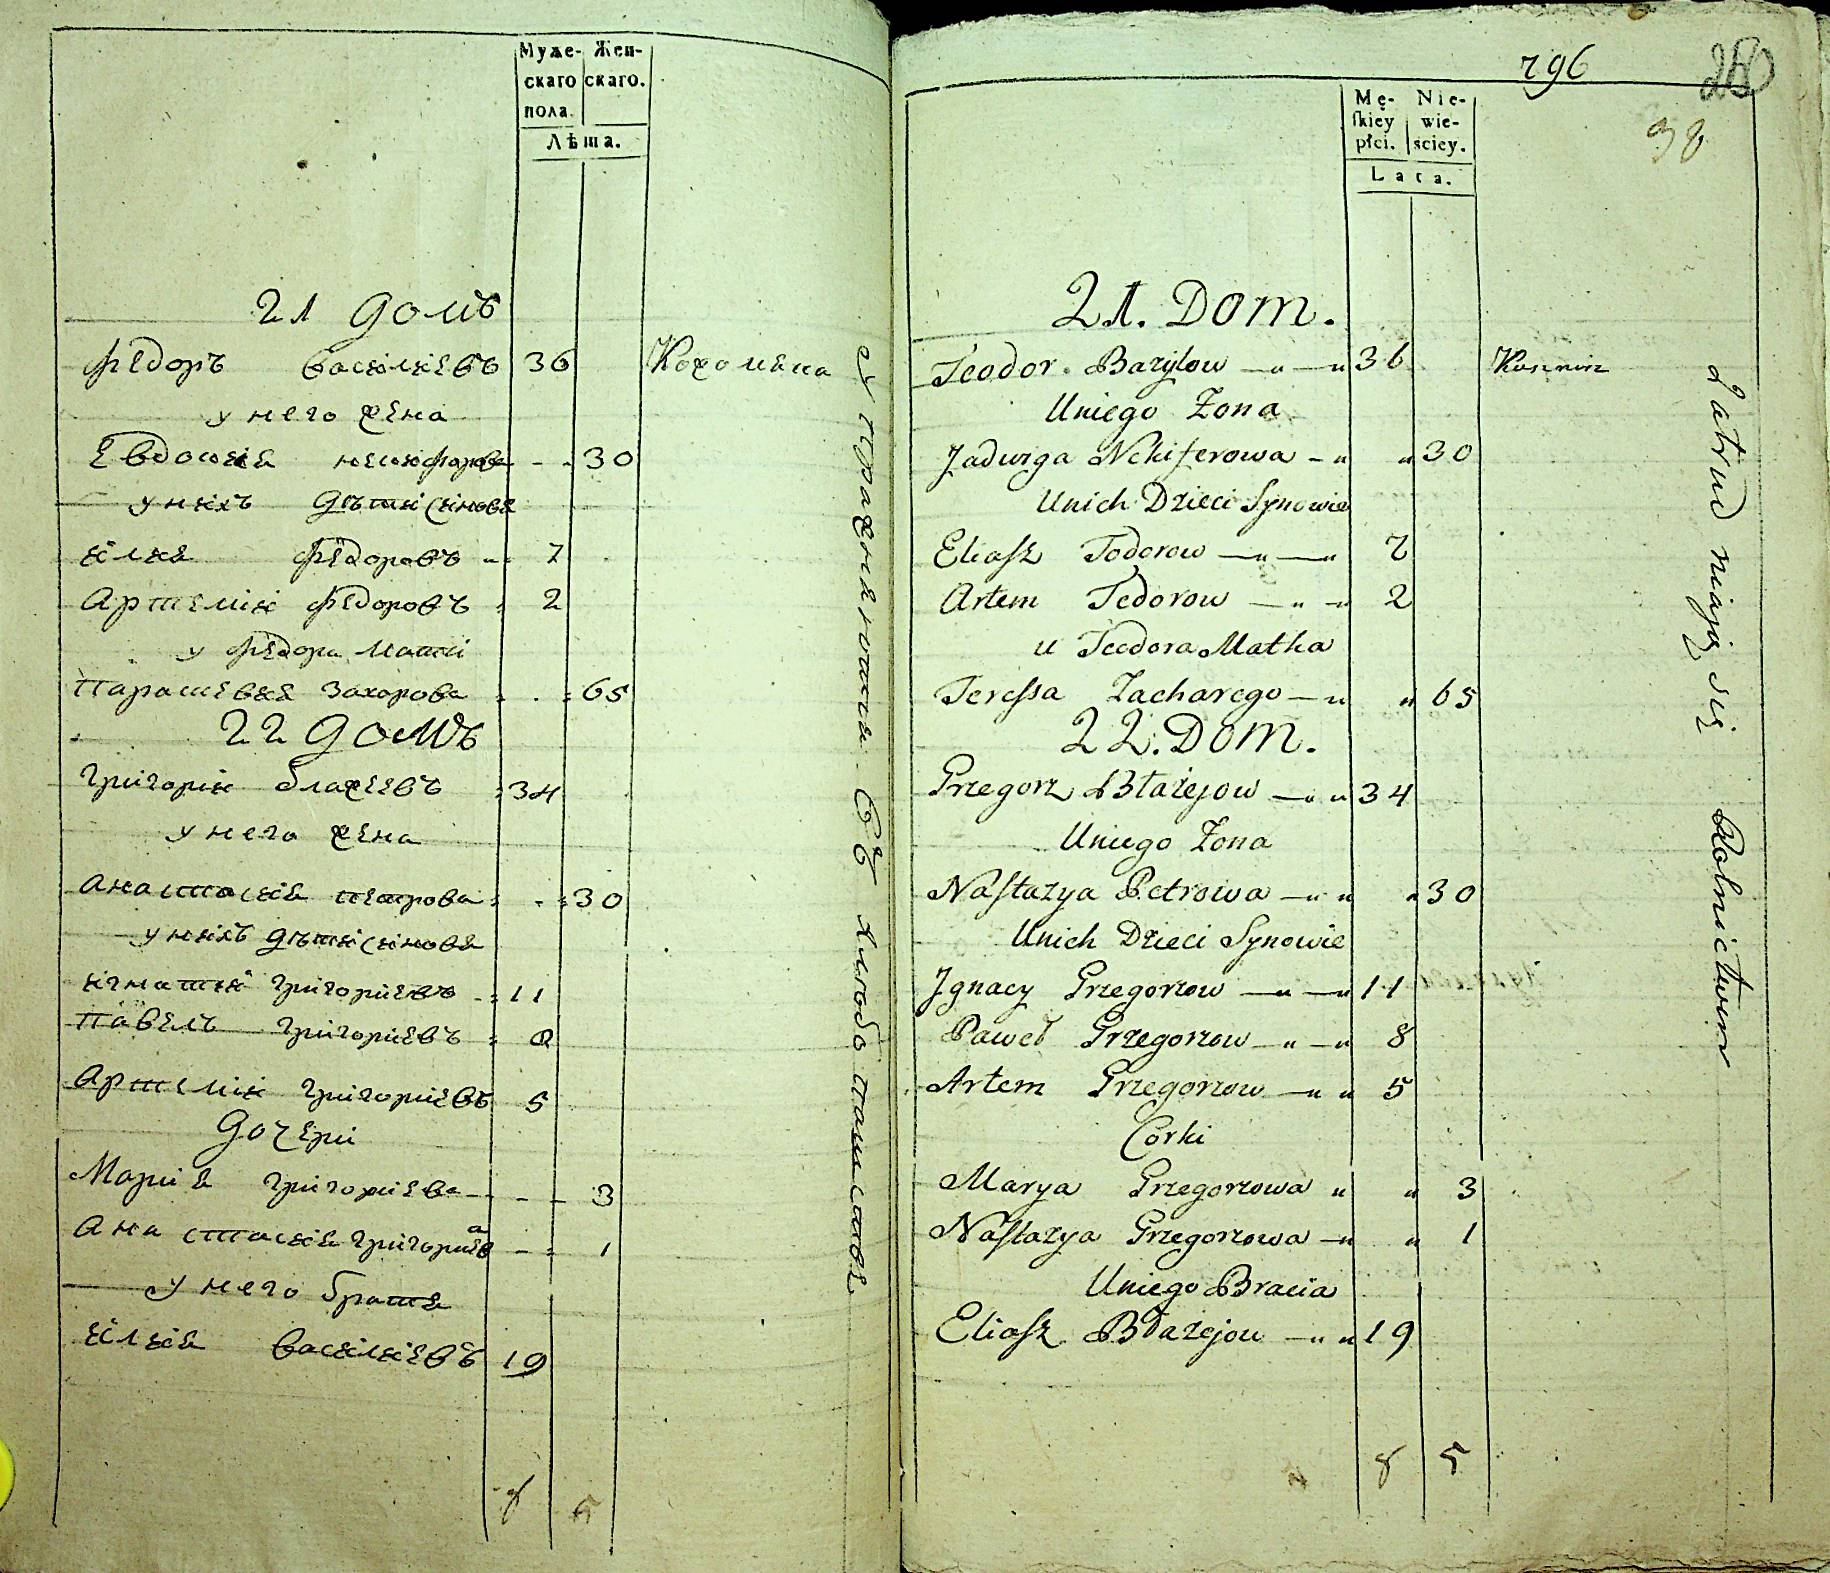 Муже- Жен-
скаго скаго.
пола.
Лѣта.
21 домъ
Федоръ василиевъ 36
у него жена
Евдокия никифорова - - 30
у нихъ дѣти синовя
илия Федоровъ -- 7
Артемии Федоровъ - 2
у Федора мати
Парашевия Захорова - . - 65
22 домъ
Григории блажеевъ - 34
у него жена
анастасия петрова - . - 30
у нихъ дѣти синовя
игнатии Григориевъ - 11
Павелъ Григориевъ - 8
Артемии Григориевъ 5
дочери
Мария Григориева - - - 3
Анастасия Григориева - - 1
у него братя
илия василиевъ 19
8 5
упражняются въ хлебопашестве
796
250
38
Mę- Nie-
skiey wie-
płci. sciey.
Lata.
21. Dom.
Teodor Bazylow 36
Uniego Żona
Jadwiga Nekiferowa 30
Unich Dzieci Synowie
Eliasz Todorow 7
Artem Tedorow 2
u Teodora Matka
Teressa Zacharego 65
22. Dom.
Grzegorz Błażejow 34
Uniego Żona
Nastazya Petrowa 30
Unich Dzieci Synowie
Jgnacy Grzegorzow 11
Paweł Grzegorzow 8
Artem Grzegorzow 5
Corki
Marya Grzegorzowa 3
Nastazya Grzegorzowa 1
Uniego Bracia
Eliasz Błażejow 19
8 5
Zatrudniają się Rolnictwem